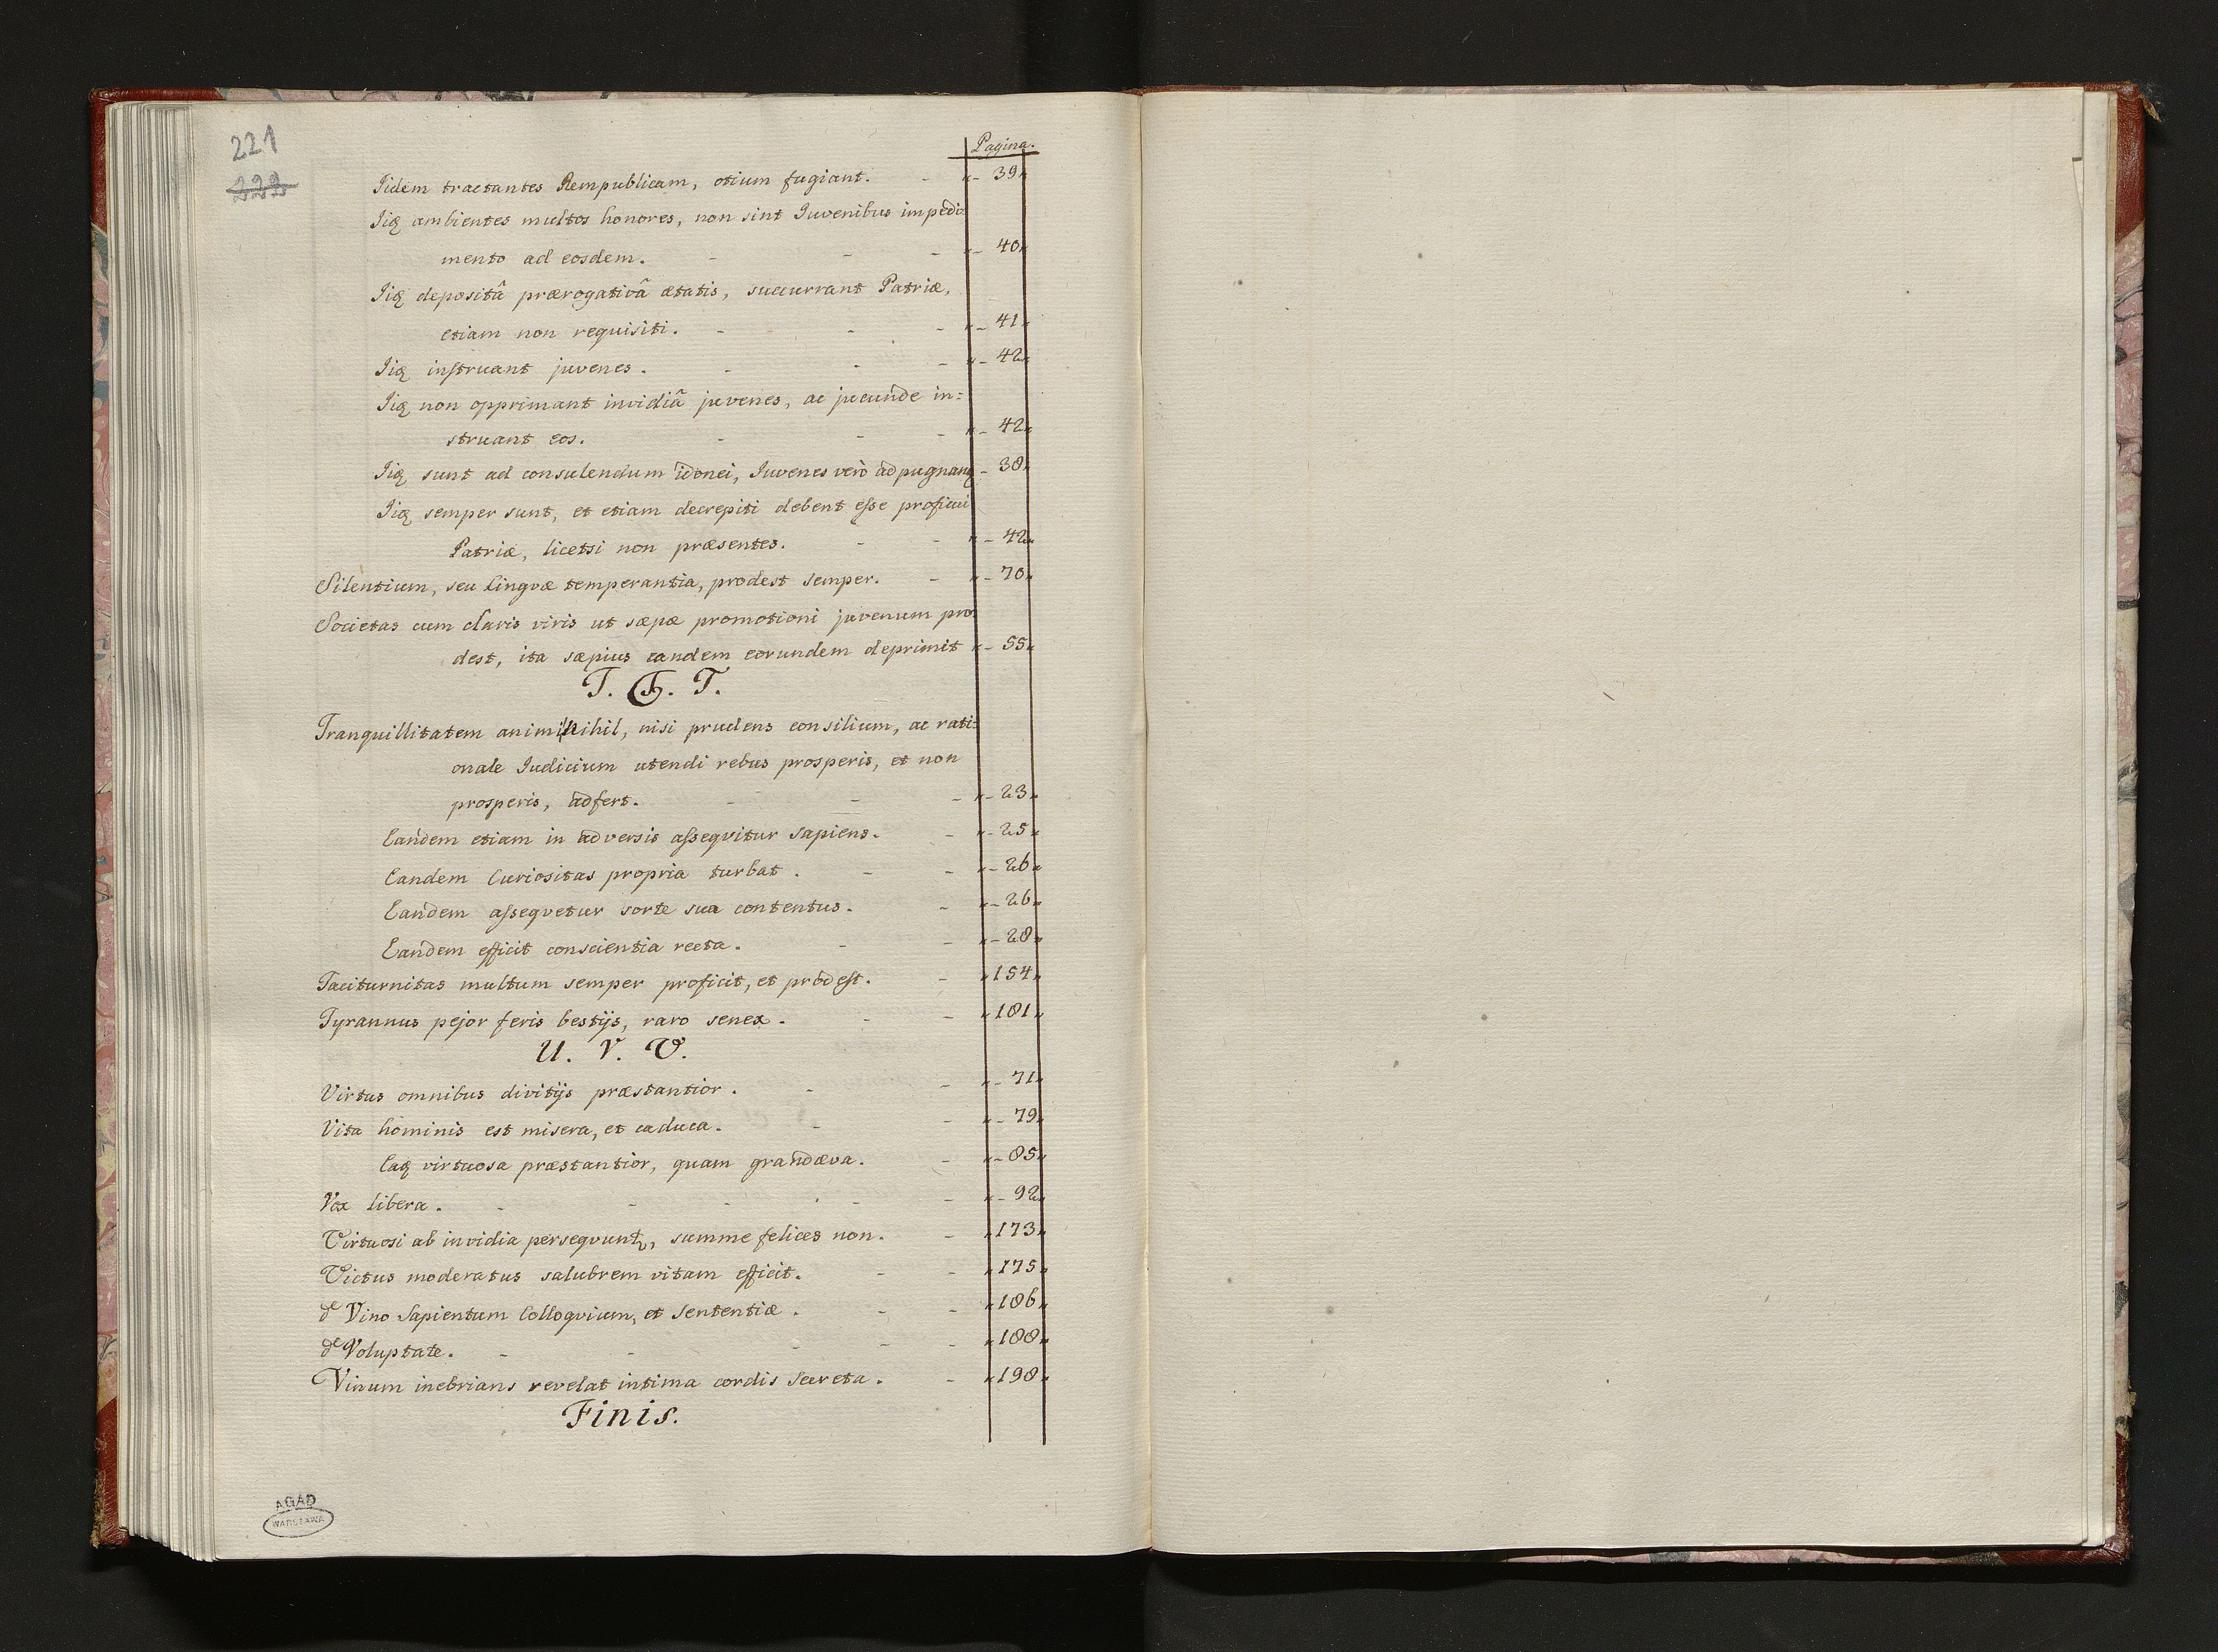 221
222
Pagina.
Iidem tractantes Rempublicam, otium fugiant. - „- 39„
Iiq ambientes multos honores, non sint Iuvenibus impedi=
mento ad eosdem. - - - „- 40„
Iiq depositâ prærogativâ ætatis, succurrant Patriæ,
etiam non requisiti. - - - „- 41„
Iiq instruant juvenes. - - - „- 42„
Iiq non opprimant invidiâ juvenes, ac jucunde in=
struant eos. - - - „- 42„
Iiq sunt ad consulendum idonei, Iuvenes verò ad pugnanq - 38„
Iiq semper sunt, et etiam decrepiti debent esse proficui
Patriæ, licetsi non præsentes. - - „- 42„
Silentium, seu lingvæ temperantia, prodest semper. - „- 70„
Societas cum claris viris ut sæpæ promotioni juvenum pro=
dest, ita sæpius eandem eorundem deprimit „- 55„
T. T. T.
Tranquillitatem animi nihil, nisi prudens consilium, ac rati=
onale Iudicium utendi rebus prosperis, et non
prosperis, adfert. - - - „- 23„
Eandem etiam in adversis assequitur sapiens. - „- 25„
Eandem Curiositas propria turbat. - - „- 26„
Eandem asseqvetur sorte sua contentus. - „- 26„
Eandem efficit conscientia recta. - - „- 28„
Taciturnitas multum semper proficit, et prodest. - „154„
Tyrannus pejor feris bestijs, raro senex. - - „181„
U. V. V.
Virtus omnibus divitijs præstantior. - - „- 71„
Vita hominis est misera, et caduca. - - „- 79„
Eaq virtuosa præstantior, quam grandæva. - „- 85„
Vox libera. - - - - - „- 92„
Virtuosi ab invidia perseqvunt, summe felices non. - „173„
Victus moderatus salubrem vitam efficit. - - „175„
de Vino Sapientum Colloqvium, et Sententiæ. - - „186„
de Voluptate. - - - - - „188„
Vinum inebrians revelat intima cordis Secreta. - „198„
Finis.
AGAD
WARSZAWA